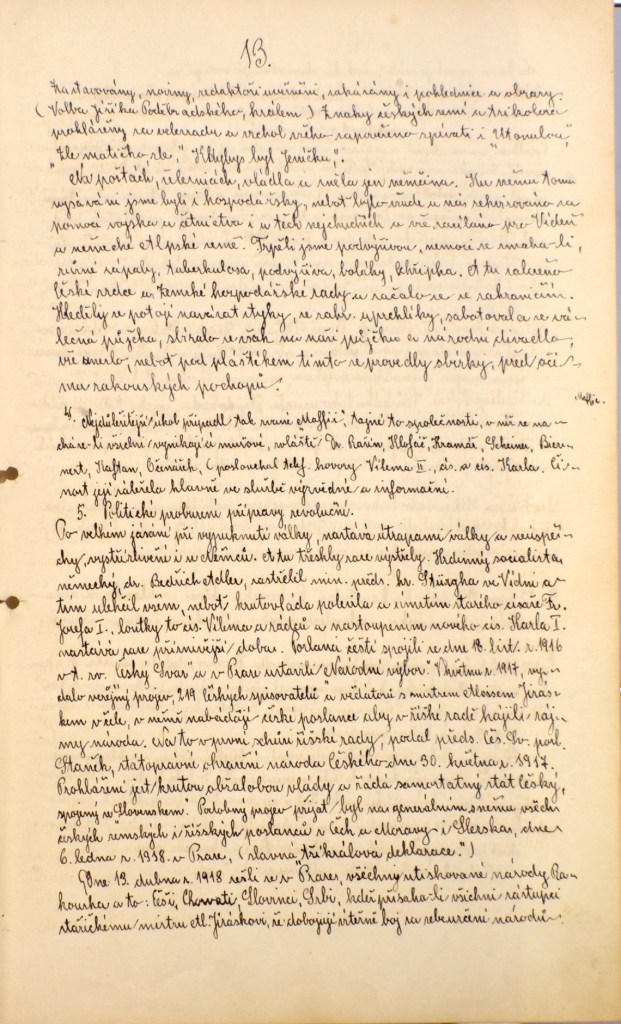 13.
zastavovány, noviny, redaktoři uvězněni, zakázány i pohlednice a obrazy.
(Volba Jiříka Poděbradského, králem) Znaky českých zemí a trikolora
prohlášeny za velezradu a vrchol všeho zapověženo zpívati i "Utonulou",
"Zle matičko zle," "Kdybys byl Jeníčku,".
Na poštách, železnicích, vládla a směla jen němčina. Ku všemu tomu
vysáváni jsme byli i hospodářsky, neboť bylo všude u nás rekvirováno za
pomoci vojska a četnictva i u těch nejchudších a vše zasíláno pro Vídeň
a německé Alpské země. Trpěli jsme podvýživou, nemoci se zmohli,
různé zápaly, tuberkulosa, podvýživa, boláky, chřipka. A tu založeno
České srdce a Zemské hospodářské rady a začalo se se zahraničím.
Hleděly se potají navázat styky, se zahr. uprchlíky, sabotovala se vá-
lečná půjčka, sbíralo se však na naši půjčku a národní divadlo,
vše neslo, neboť pod pláštíkem tímto se provedly sbírky, před oči-
ma rakouských pochopů.
Maffie.
4. Nejdůležitější úkol připadl tak zvané "Maffii", tajné to společnosti, v níž se na-
cházeli všichni vynikající mužové, zvláště: Dr. Rašín, Klofáč, Kramář, Scheiner, Bier-
nert, Kaftan, Očenášek, (poslouchal telef. hovory Viléma II., cís. a cís. Karla. Čin-
nost její záležela hlavně ve službě výzvědné a informační.
5. Politické probuzení přípravy revoluční.
Po velkém jásání při vypuknutí války, nastává útrapami války a neúspě-
chy, vystřízlivění i u Němců. A tu třeskly rázné výstřely. Hrdinný socialista
německý, dr. Bedřich Adler, zastřelil min. předs. hr. Stürgha ve Vídni a
tím ulehčil všem, neboť krutovláda polevila a úmrtím starého císaře Fr.
Josefa I., loutky to cís. Viléma a rádců a nastoupením nového cís. Karla I.
nastává zase příznivější doba. Poslanci čeští spojili se dne 18. list. r. 1916
v t. zv. "Český Svaz" a v Praze ustavili "Národní výbor." V květnu r. 1917, vy-
dalo veřejný projev, 219 českých spisovatelů a vědátorů s mistrem Aloisem Jirás-
kem v čele, v němž nabádají české poslance aby v říšké radě hájili záj-
my národa. Na to v první schůzi říšské rady, podal předs. Čes. Sv. posl.
Staněk, státoprávní ohražení národa Českého dne 30. května r. 1917.
Prohlášení jest krutou obžalobou vlády a žádá samostatný stát Český,
spojený se Slovenskem. Podobný projev přijat byl na generálním sněmu všech
českých zemských i říšských poslanců z Čech a Moravy i Slezska, dne
6. ledna r. 1918. v Praze, (slavná "tříkrálová deklarace.")
Dne 13. dubna r. 1918 sešli se v Praze, všechny utiskované národy Ra-
kouska a to: Češi, Chorvati, Slovinci, Srbi, kdež přísahali všichni zástupci
stařičkému mistru Al. Jiráskovi, že dobojují vítězně boj za sebeurčení národů.